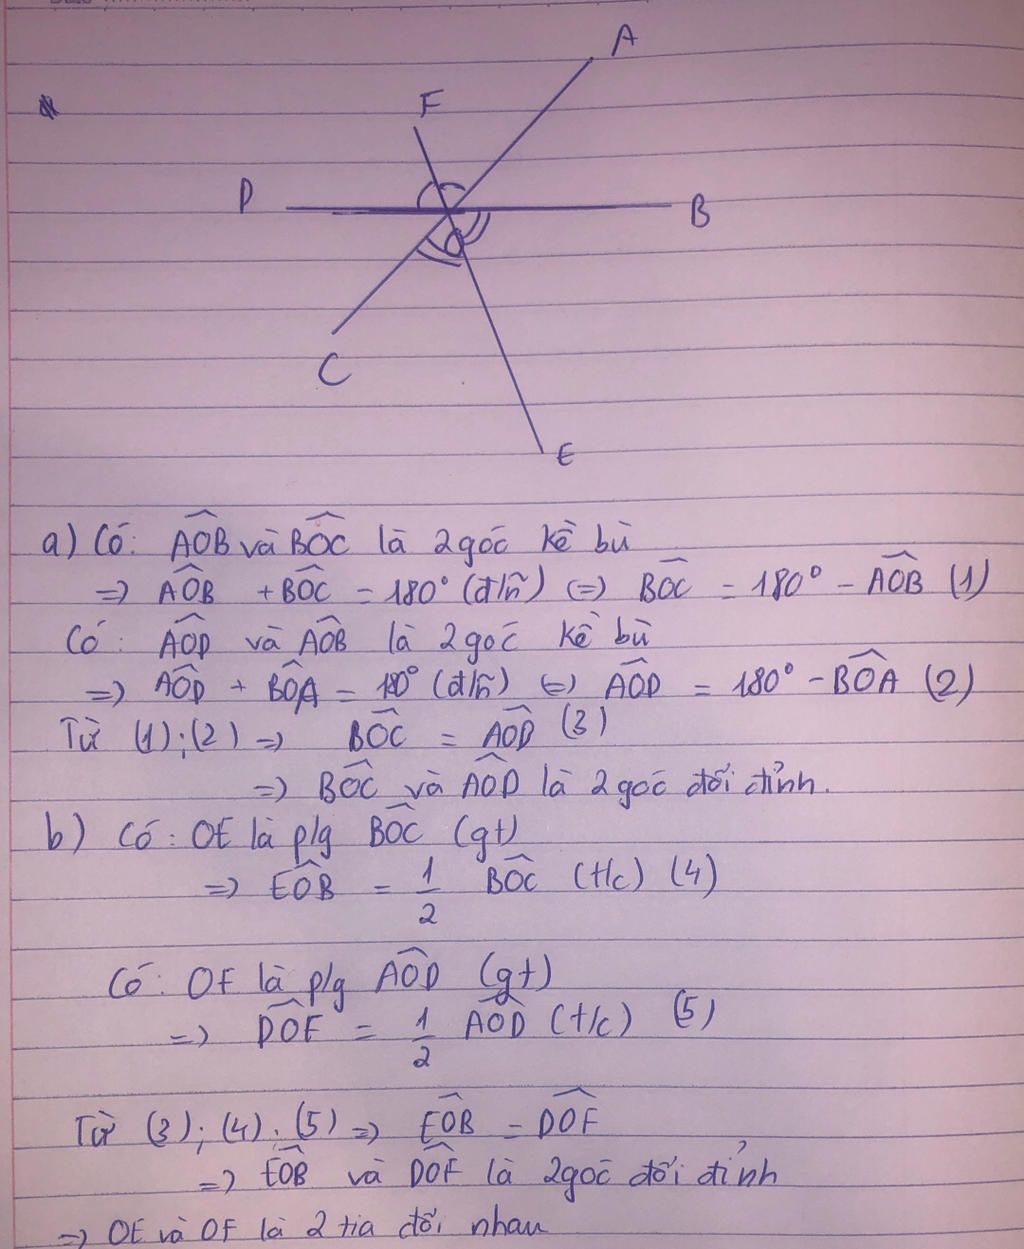 A
F
D
B
O
C
E
a) Có: AÔB và BÔC là 2 góc kề bù
=> AÔB + BÔC = 180° (đ/n) <=> BÔC = 180° - AÔB (1)
Có: AÔD và AÔB là 2 góc kề bù
=> AÔD + BÔA = 180° (đ/n) <=> AÔD = 180° - BÔA (2)
Từ (1);(2) => BÔC = AÔD (3)
=> BÔC và AÔD là 2 góc đối đỉnh.
b) Có: OE là p/g BÔC (gt)
=> EÔB = 1/2 BÔC (t/c) (4)
Có: OF là p/g AÔD (gt)
=> DÔF = 1/2 AÔD (t/c) (5)
Từ (3); (4); (5) => EÔB = DÔF
=> EÔB và DÔF là 2 góc đối đỉnh
=> OE và OF là 2 tia đối nhau